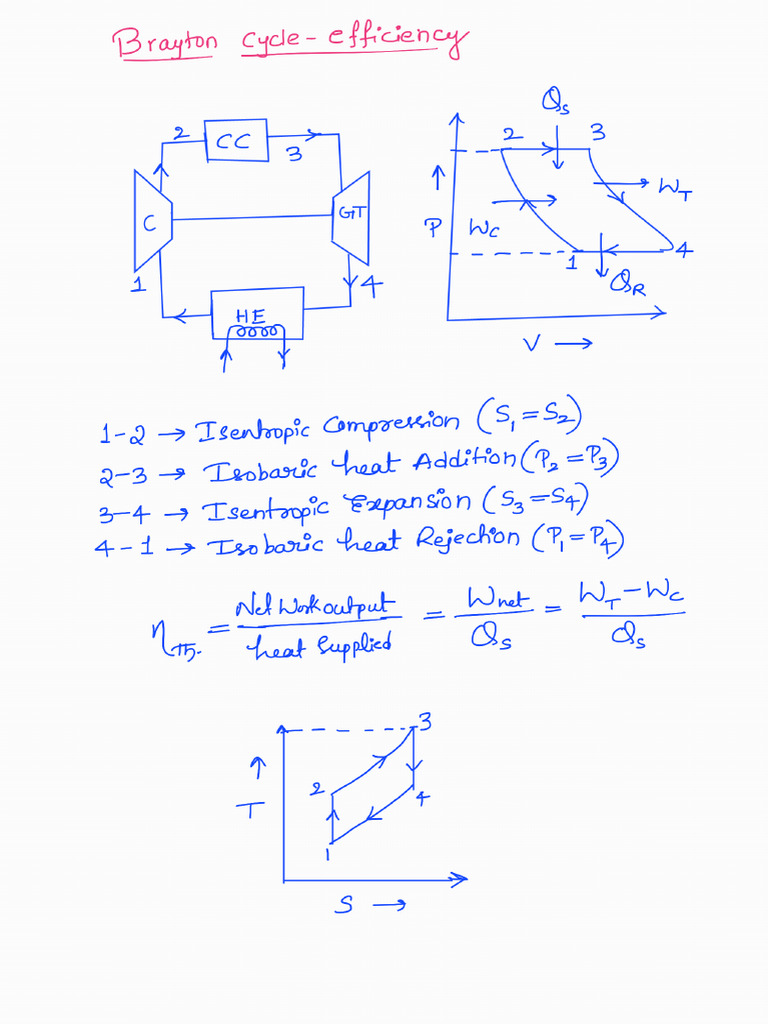 Brayton cycle - efficiency
2 CC 3
C GT
1 4
HE
Qs
2 3
P Wc WT
1 4
QR
V →
1-2 → Isentropic Compression (S₁ = S₂)
2-3 → Isobaric heat Addition (P₂ = P₃)
3-4 → Isentropic Expansion (S₃ = S₄)
4-1 → Isobaric heat Rejection (P₁ = P₄)
ηTh. = Net Work output / heat Supplied = Wnet / Qs = WT - Wc / Qs
3
T 2 4
1
S →